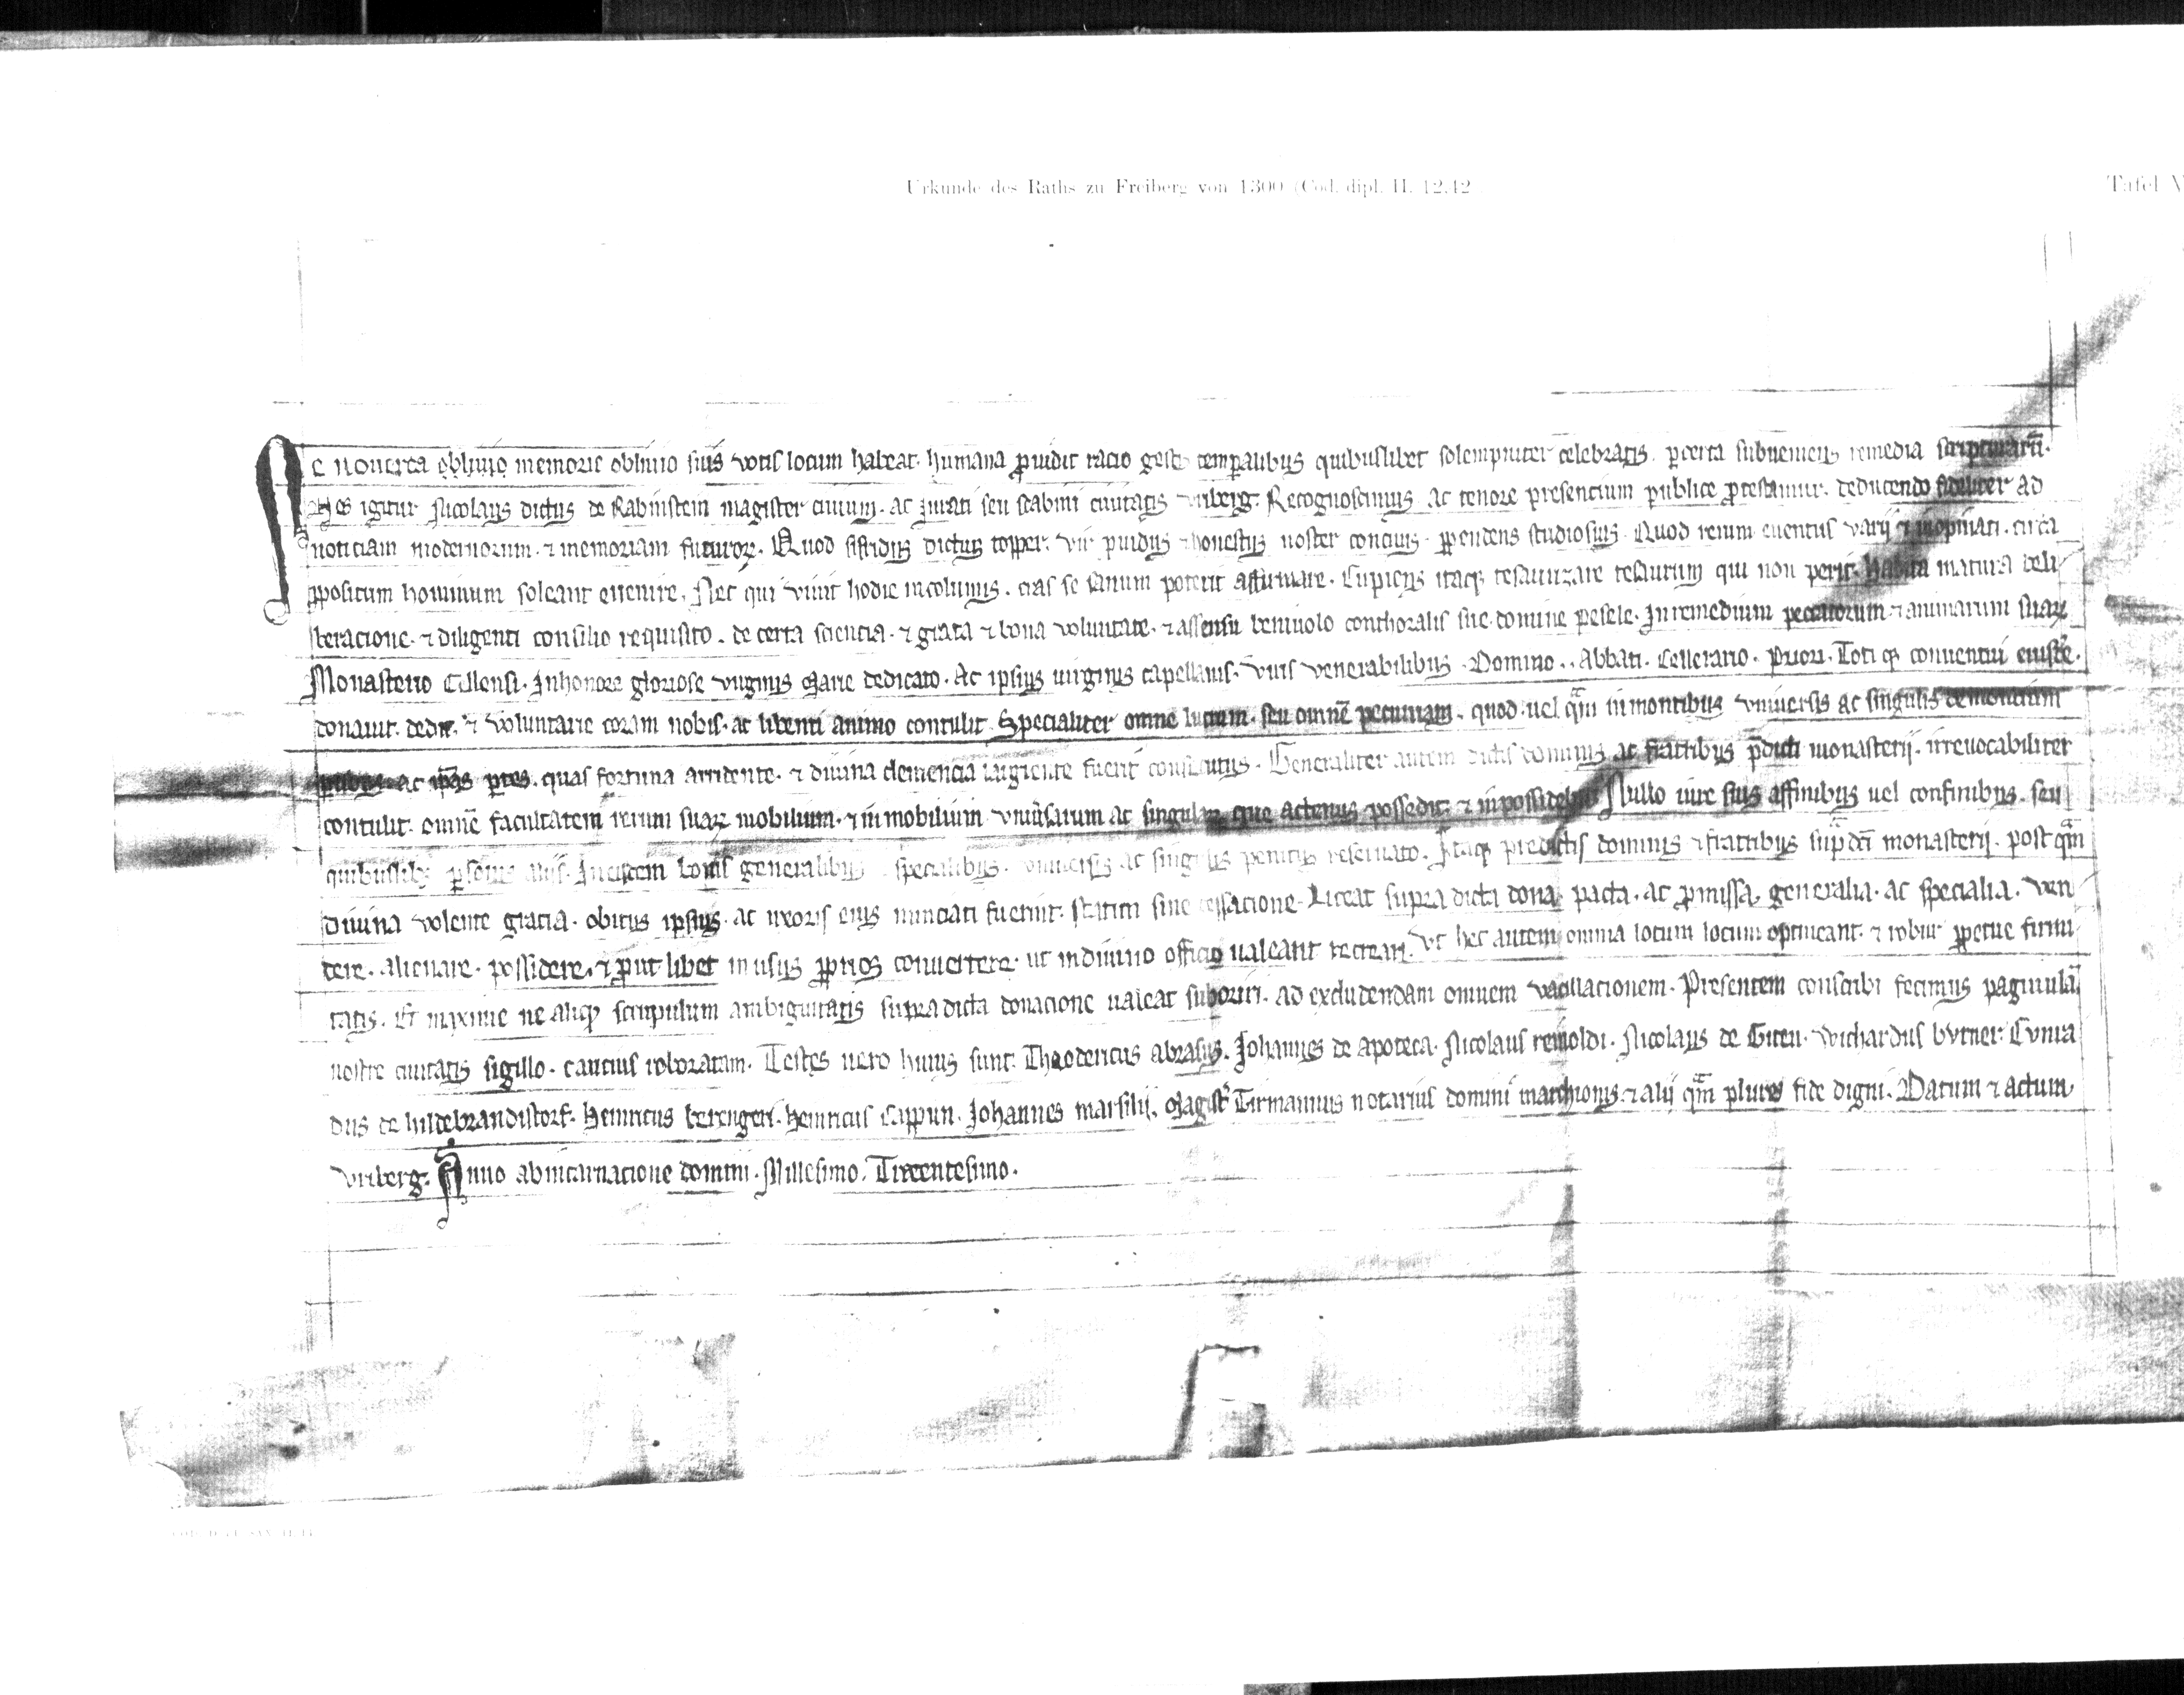 Urkunde des Raths zu Freiberg von 1300 (Cod. dipl. II. 12.42
Tafel V
Ne nouerca obliuio memorie obliuio suis votis locum habeat. humana ꝓuidit racio gestis temꝑalibus quibuslibet solempniter celebratis. ꝑ certa subueniens remedia scripturarū.
Nos igitur Nicolaus dictus de Rabinstein magister ciuium. ac Jurati seu scabini ciuitatis vriberg. Recognoscimus ac tenore presencium publice ꝓtestamur. deducendo fideliter ad
noticiam modernorum. ⁊ memoriam futuroꝝ. Quod sifridus dictus topper. vir ꝓuidus ⁊ honestus noster conciuis. ꝑpendens studiosius. Quod rerum euentus varij ⁊ inopinati. circa
ꝓpositum hominum soleant euenire. Nec qui viuit hodie incolumis. cras se sanum poterit affirmare. Cupiens itaqꝫ tesaurizare tesaurum qui non perit. habita matura deli
beracione. ⁊ diligenti consilio requisito. de certa sciencia. ⁊ grata ⁊ bona voluntate. ⁊ assensu beniuolo conthoralis sue domine ꝑesele. In remedium peccatorum ⁊ animarum suaꝝ
Monasterio Cellensi. In honore gloriose virginis Marie dedicato. Ac ipsius uirginis capellanis. viris venerabilibus. Domino.. Abbati. Cellerario. Priori. Toti qꝫ conuentui eiusdē.
donauit. dedit. ⁊ voluntarie coram nobis. ac libenti animo contulit. Specialiter omne lucrum. seu omnē pecuniam. quod uel quā in montibus vniuersis ac singulis
ac ꝑtes. quas fortuna arridente. ⁊ diuina clemencia largiente fuerit consecutus. Generaliter autem dictis dominis ac fratribus p̄dicti monasterij. irreuocabiliter
contulit. omnē facultatem rerum suaꝝ mobilium. ⁊ inmobilium vniūsarum ac singulaꝝ que actenus possedit. ⁊ in possidebit Nullo iure suis affinibus uel confinibus. seu
quibuslibꝫ ꝑsonis aliis. In eisdem bonis generalibus specialibus. vniuersis ac singulis penitus reseruato. Itaqꝫ predictis dominis ⁊ fratribus sup̄dc̄i monasterij. post quā
diuina volente gracia. obitus ipsius. ac uxoris eius nunciati fuerint. statim sine cessacione. Liceat supra dicta dona. pacta. ac ꝓmissa. generalia. ac specialia. ven
dere. alienare. possidere. ⁊ ꝓut libet in usus ꝓprios conuertere. ut in diuino officio ualeant recreari. Vt hec autem omnia locum locum optineant. ⁊ robur ꝑpetue firmi
tatis. Et maxime ne aliqꝫ scrupulum ambiguitatis supra dicta donacione ualeat suboriri. ad excludendam omnem vacillacionem. Presentem conscribi fecimus paginulā
nostre ciuitatis sigillo. caucius roboratam. Testes uero huius sunt. Theodericus abrasus. Johannes de apoteca. Nicolaus reinoldi. Nicolaus de Giten. Wichardus bvtner. Cvnra
dus de hildebrandistorf. Heinricus berengeri. Heinricus Cappun. Johannes marsilij. Magistˀ Tirmannus notarius domini marchionis. ⁊ alij quā plures fide digni. Datum ⁊ actum
vriberg. Anno ab incarnacione domini. Millesimo. Trecentesimo.